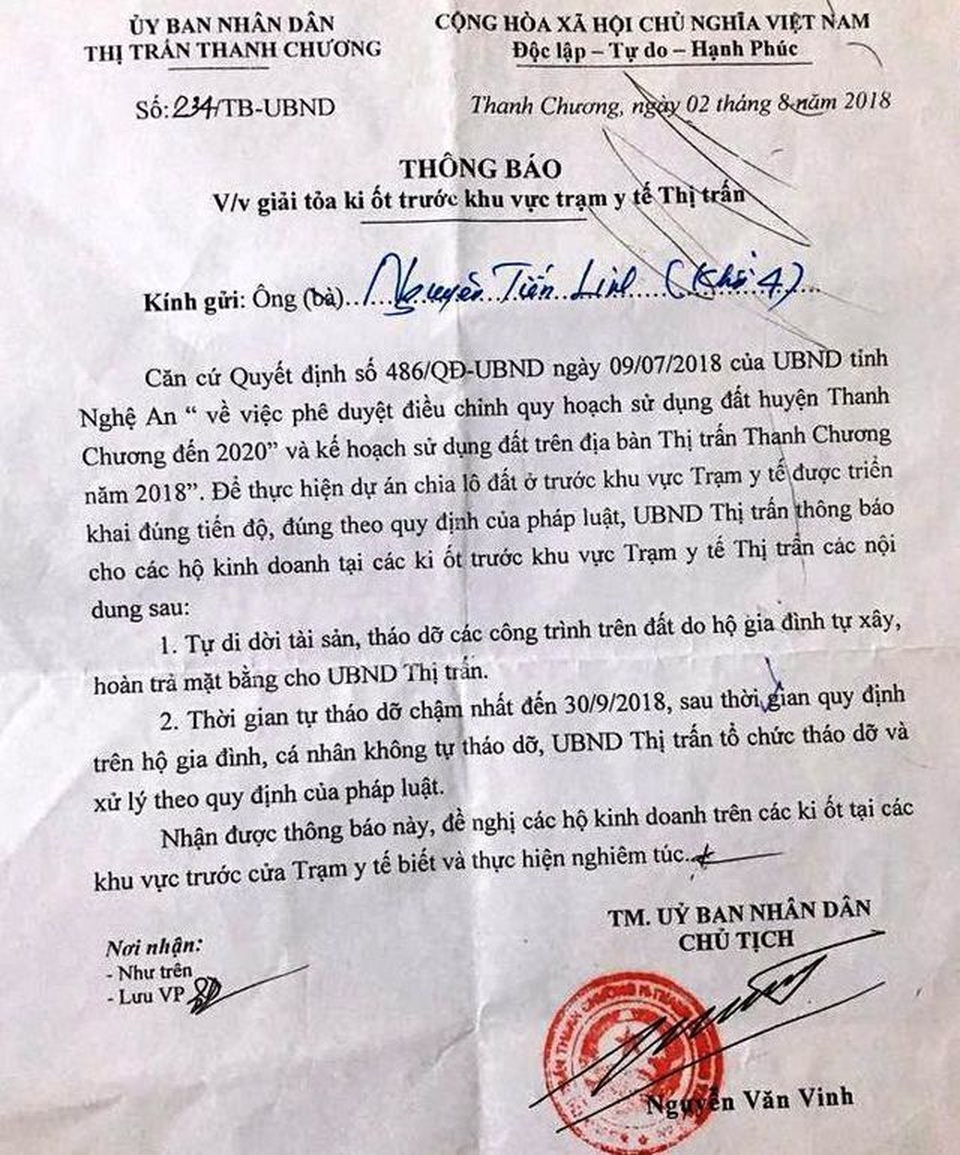 ỦY BAN NHÂN DÂN
THỊ TRẤN THANH CHƯƠNG
CỘNG HÒA XÃ HỘI CHỦ NGHĨA VIỆT NAM
Độc lập – Tự do – Hạnh Phúc
Số: 234/TB-UBND
Thanh Chương, ngày 02 tháng 8 năm 2018
THÔNG BÁO
V/v giải tỏa ki ốt trước khu vực trạm y tế Thị trấn
Kính gửi: Ông (bà)... Nguyễn Tiến Linh (Khối 4)...
Căn cứ Quyết định số 486/QĐ-UBND ngày 09/07/2018 của UBND tỉnh
Nghệ An “ về việc phê duyệt điều chỉnh quy hoạch sử dụng đất huyện Thanh
Chương đến 2020” và kế hoạch sử dụng đất trên địa bàn Thị trấn Thanh Chương
năm 2018”. Để thực hiện dự án chia lô đất ở trước khu vực Trạm y tế được triển
khai đúng tiến độ, đúng theo quy định của pháp luật, UBND Thị trấn thông báo
cho các hộ kinh doanh tại các ki ốt trước khu vực Trạm y tế Thị trấn các nội
dung sau:
1. Tự di dời tài sản, tháo dỡ các công trình trên đất do hộ gia đình tự xây,
hoàn trả mặt bằng cho UBND Thị trấn.
2. Thời gian tự tháo dỡ chậm nhất đến 30/9/2018, sau thời gian quy định
trên hộ gia đình, cá nhân không tự tháo dỡ, UBND Thị trấn tổ chức tháo dỡ và
xử lý theo quy định của pháp luật.
Nhận được thông báo này, đề nghị các hộ kinh doanh trên các ki ốt tại các
khu vực trước cửa Trạm y tế biết và thực hiện nghiêm túc.
Nơi nhận:
- Như trên
- Lưu VP
TM. UỶ BAN NHÂN DÂN
CHỦ TỊCH
Nguyễn Văn Vinh